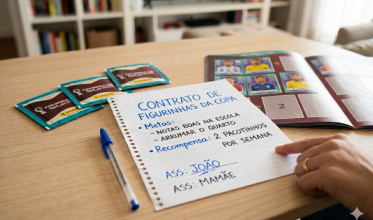 CONTRATO DE
FIGURINHAS DA COPA
• Metas:
- NOTAS BOAS NA ESCOLA
- ARRUMAR O QUARTO
• Recompensa: 2 PACOTINHOS
POR SEMANA
ASS: JOÃO
ASS: MAMÃE
2